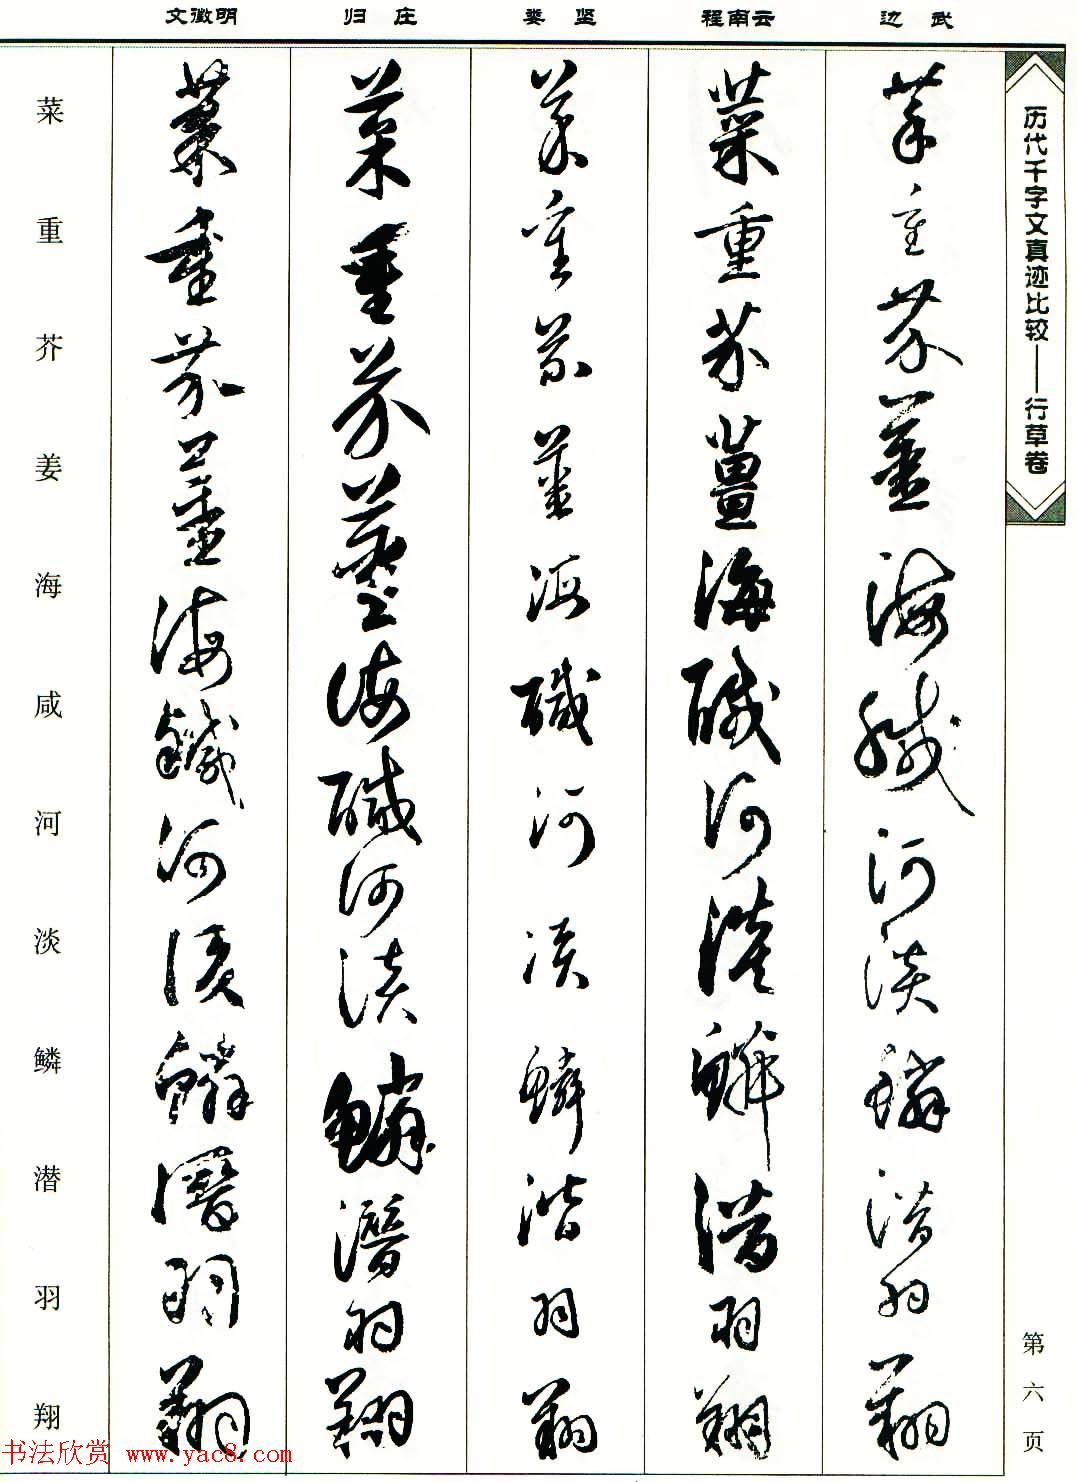 文徵明
归 庄
娄 坚
程南云
边 武
历代千字文真迹比较——行草卷
第六页
菜重芥姜海咸河淡鳞潜羽翔
菜重芥薑海醎河淡鳞潜羽翔
菜重芥薑海醎河淡鳞潜羽翔
菜重芥薑海醎河淡鳞潜羽翔
菜重芥薑海鹹河淡鳞潜羽翔
菜重芥薑海鹹河淡鳞潜羽翔
书法欣赏 www.yac8.com